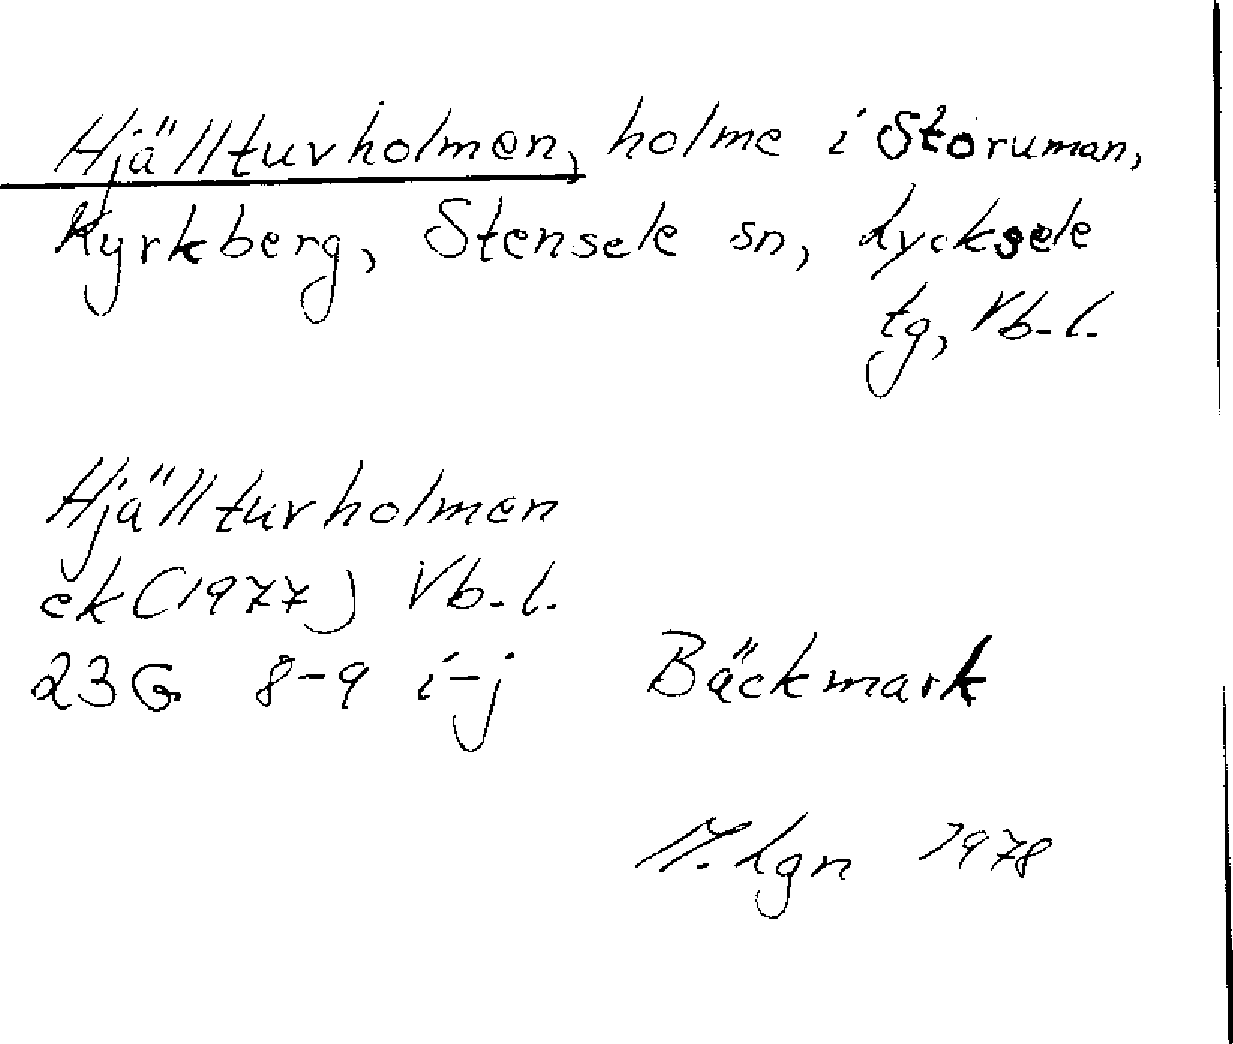 Hjälltuvholmen, holme i Storuman,
Kyrkberg, Stensele sn, Lycksele
tg, Vb-l.
Hjälltuvholmen
ek (1977) Vb-l.
23G 8-9 i-j Bäckmark
M. Lgn 1978